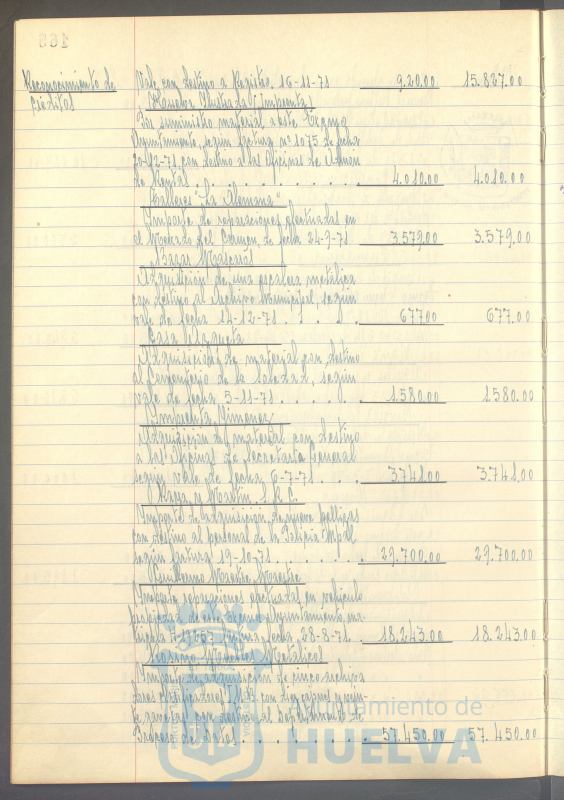 Reconocimiento de
créditos
Vale con destino a Registro, 16-11-71 9.20.00 15.827.00
Por suministro material a este Excmo
Ayuntamiento, según factura nº 1075 de fecha
20-12-71, con destino a las Oficinas de Admón
de Rentas 4.010.00 4.010.00
Talleres "La Alemana"
Importe de reparaciones efectuadas en
el Mercado del Carmen de fecha 24-9-71 3.579.00 3.579.00
Bazar Mascarós
Adquisición de una escalera metálica
con destino al Archivo Municipal, según
vale de fecha 14-12-71 677.00 677.00
Casa
Adquisición de material con destino
al Cementerio de la Soledad, según
vale de fecha 5-11-71 1.580.00 1.580.00
Imprenta Jimenez
Adquisición de material con destino
a las Oficinas de Secretaría General
según vale de fecha 6-7-71 3.741.00 3.741.00
y Martín S.R.C.
Importe de adquisición de nueve pellizas
con destino al personal de la Policía Mpal
según factura 19-10-71 29.700.00 29.700.00
Guillermo Maestre Maestre
Importe reparaciones efectuadas en vehículo
propiedad de este Excmo Ayuntamiento, ma-
factura fecha, 28-8-71 18.243.00 18.243.00
Muebles Metálicos
Importe de adquisición de cinco archiva
dores
con destino al Departamento de
Proceso de Datos 57.450.00 57.450.00
Ayuntamiento de
HUELVA